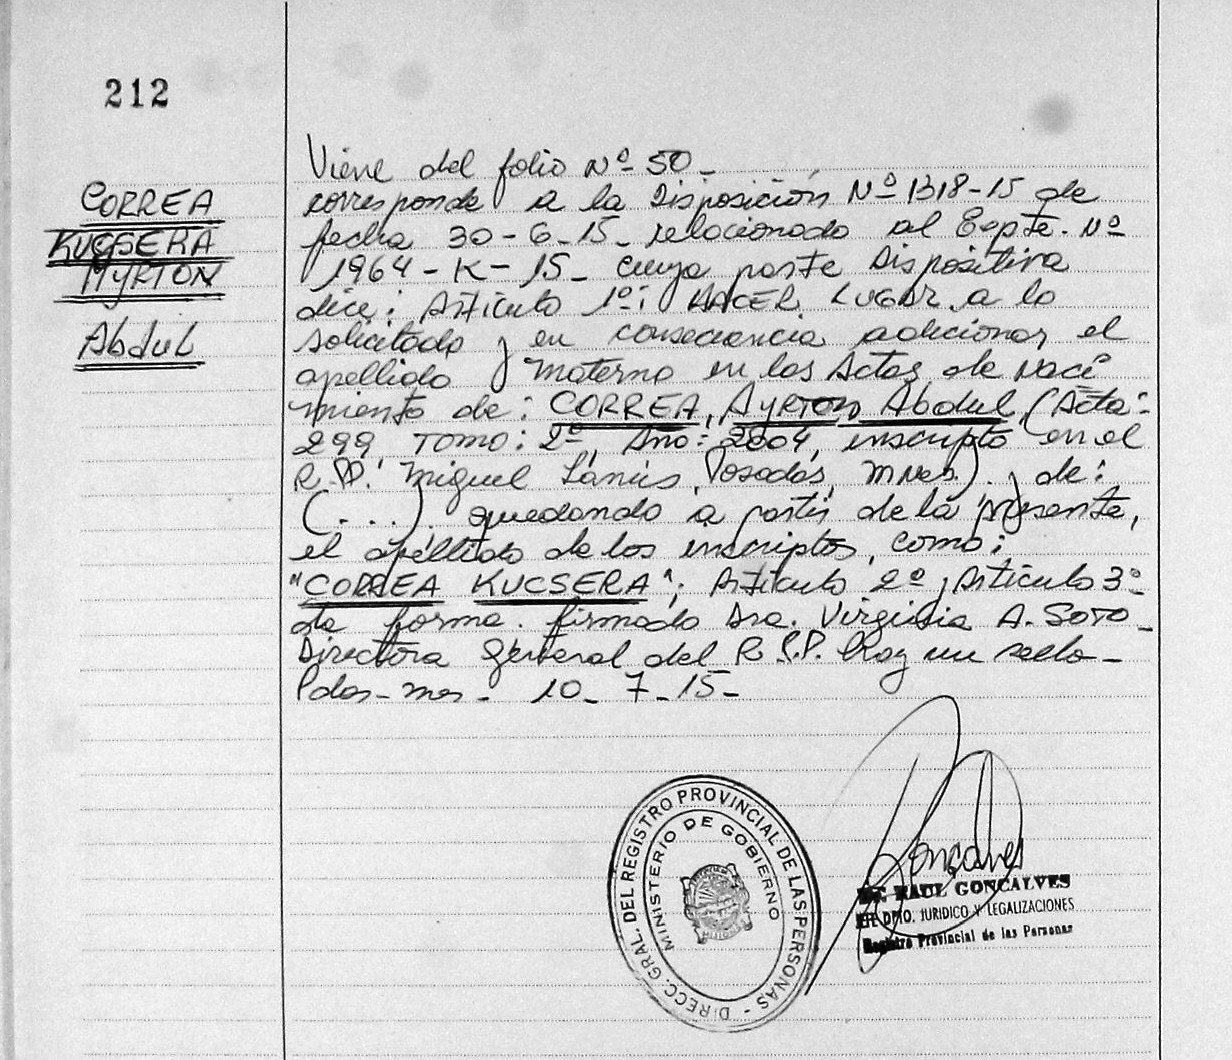 212
CORREA
KUCSERA
AYRTON
Abdul
Viene del folio Nº 50 -
corresponde a la Disposición Nº 1318-15 de
fecha 30-6-15- relacionado al Expte. Nº
1964-K-15- cuya parte dispositiva
dice: Artículo 1º: HACER LUGAR a lo
solicitado y en consecuencia adicionar el
apellido materno en las Actas de naci
miento de: CORREA, AYRTON Abdul (Acta:
299 Tomo: 2º, Año: 2004, inscripto en el
R.P.P. Miguel Lanús, Posadas, Mnes). y de:
(...). quedando a partir de la presente,
el apellido de los inscriptos, como:
"CORREA KUCSERA"; Artículo 2º, Artículo 3º
de forma. firmado Dra. Virginia A. SOTO-
Directora General del R.P.P. Hay un sello-
Pdas-mnes- 10-7-15-
DIRECC. GRAL. DEL REGISTRO PROVINCIAL DE LAS PERSONAS -
MINISTERIO DE GOBIERNO
MISIONES
Goncalves
RAUL GONCALVES
DPTO. JURIDICO Y LEGALIZACIONES
Registro Provincial de las Personas